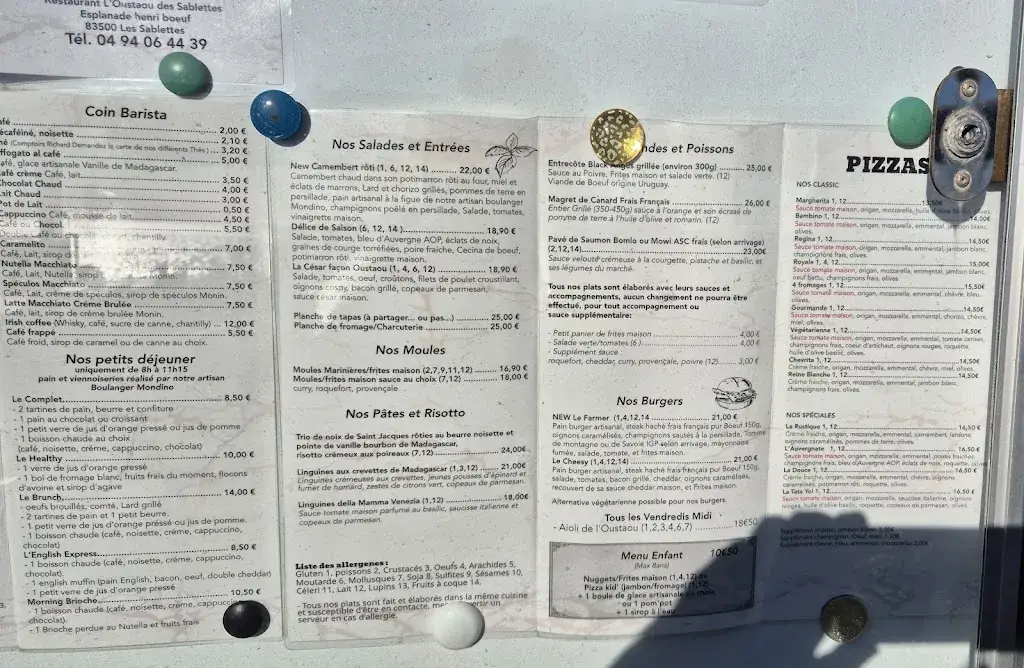 Restaurant L'Oustaou des Sablettes
Esplanade henri boeuf
83500 Les Sablettes
Tél. 04 94 06 44 39
Coin Barista
2,00 €
écaféiné, noisette 2,10 €
(Comptoirs Richard Demandez la carte de nos différents Thés) 3,20 €
ffogato al café 5,00 €
afé, glace artisanale Vanille de Madagascar.
afé crème Café, lait 3,50 €
hocolat Chaud 4,00 €
ait Chaud 3,00 €
Pot de Lait 0,50 €
Cappuccino Café, mousse de lait 4,50 €
Café ou Chocol 5,50 €
Double Café ou chantilly
Caramelito 7,00 €
Café, Lait, sirop
Nutella Macchiato 7,50 €
Café, Lait, Nutella, sirop
Spéculos Macchiato 7,50 €
Café, Lait, crème de spéculos, sirop de spéculos Monin.
Latte Macchiato Crème Brulée 7,50 €
Café, lait, sirop de crème brulée Monin.
Irish coffee (Whisky, café, sucre de canne, chantilly) ... 12,00 €
Café frappé 5,50 €
Café froid, sirop de caramel ou de canne au choix.
Nos petits déjeuner
uniquement de 8h à 11h15
pain et viennoiseries réalisé par notre artisan
Boulanger Mondino
Le Complet 8,50 €
- 2 tartines de pain, beurre et confiture
- 1 pain au chocolat ou croissant
- 1 petit verre de jus d'orange pressé ou jus de pomme
- 1 boisson chaude au choix
(café, noisette, crème, cappuccino, chocolat)
Le Healthy 10,00 €
- 1 verre de jus d'orange pressé
- 1 bol de fromage blanc, fruits frais du moment, flocons
d'avoine et sirop d'agave
Le Brunch 14,00 €
- oeufs brouillés, comté, Lard grillé
- 2 tartines de pain et 1 petit beurre,
- 1 petit verre de jus d'orange pressé ou jus de pomme.
- 1 boisson chaude (café, noisette, crème, cappuccino,
chocolat)
L'English Express 8,50 €
- 1 boisson chaude (café, noisette, crème, cappuccino,
chocolat).
- 1 english muffin (pain English, bacon, oeuf, double cheddar)
- 1 petit verre de jus d'orange pressé
Morning Brioche 10,50 €
- 1 boisson chaude (café, noisette, crème,
chocolat)
- 1 Brioche perdue au Nutella et fruits frais
Nos Salades et Entrées
New Camembert rôti (1, 6, 12, 14) 22,00 €
Camembert chaud dans son potimarron rôti au four, miel et
éclats de marrons, Lard et chorizo grillés, pommes de terre en
persillade, pain artisanal à la figue de notre artisan boulanger
Mondino, champignons poêlé en persillade, Salade, tomates,
vinaigrette maison.
Délice de Saison (6, 12, 14) 18,90 €
Salade, tomates, bleu d'Auvergne AOP, éclats de noix,
graines de courge torréfiées, poire fraîche, Cecina de boeuf,
potimarron rôti, vinaigrette maison.
La César façon Oustaou (1, 4, 6, 12) 18,90 €
Salade, tomates, oeuf, croûtons, filets de poulet croustillant,
oignons crispy, bacon grillé, copeaux de parmesan,
sauce césar maison.
Planche de tapas (à partager... ou pas...) 25,00 €
Planche de fromage/Charcuterie 25,00 €
Nos Moules
Moules Marinières/frites maison (2,7,9,11,12) 16,90 €
Moules/frites maison sauce au choix (7,12) 18,00 €
curry, roquefort, provençale
Nos Pâtes et Risotto
Trio de noix de Saint Jacques rôties au beurre noisette et
pointe de vanille bourbon de Madagascar,
risotto crémeux aux poireaux (7,12) 24,00€
Linguines aux crevettes de Madagascar (1,3,12) 21,00€
Linguines crémeuses aux crevettes, jeunes pousses d'épinard et
fumet de homard, zestes de citrons vert, copeaux de parmesan.
Linguines della Mamma Venezia (1,12) 18,00€
Sauce tomate maison parfumé au basilic, saucisse italienne et
copeaux de parmesan.
Liste des allergenes :
Gluten 1, poissons 2, Crustacés 3, Oeufs 4, Arachides 5,
Moutarde 6, Mollusques 7, Soja 8, Sulfites 9, Sésames 10,
Céleri 11, Lait 12, Lupins 13, Fruits à coque 14.
- Tous nos plats sont fait et élaborés dans la même cuisine
et susceptible d'être en contacte, un
serveur en cas d'allergie.
ndes et Poissons
Entrecôte Black grillée (environ 300g) 25,00 €
Sauce au Poivre, Frites maison et salade verte. (12)
Viande de Boeuf origine Uruguay.
Magret de Canard Frais Français 26,00 €
Entier Grillé (350-450g) sauce à l'orange et son écrasé de
pomme de terre à l'huile d'olive et romarin. (12)
Pavé de Saumon Bomlo ou Mowi ASC frais (selon arrivage)
(2,12,14) 23,00€
Sauce velouté crémeuse à la courgette, pistache et basilic, et
ses légumes du marché.
Tous nos plats sont élaborés avec leurs sauces et
accompagnements, aucun changement ne pourra être
effectué, pour tout accompagnement ou
sauce supplémentaire:
- Petit panier de frites maison 4,00 €
- Salade verte/tomates (6) 4,00 €
- Supplément sauce :
roquefort, cheddar, curry, provençale, poivre (12) 3,00 €
Nos Burgers
NEW Le Farmer (1,4,12,14 21,00 €
Pain burger artisanal, steak haché frais français pur Boeuf 150g,
oignons caramélisés, champignons sautés à la persillade, Tomme
de montagne ou de Savoie IGP selon arrivage, mayonnaise
fumée, salade, tomate, et frites maison.
Le Cheesy (1,4,12,14) 21,00 €
Pain burger artisanal, steak haché frais français pur Boeuf 150g,
salade, tomates, bacon grillé, cheddar, oignons caramélisés,
recouvert de sa sauce cheddar maison, et Frites maison.
Alternative végétarienne possible pour nos burgers.
Tous les Vendredis Midi
- Aïoli de l'Oustaou (1,2,3,4,6,7) 18€50
Menu Enfant 10€50
(Max 8ans)
Nuggets/Frites maison (1,4,12) ou
Pizza kid' (jambon/fromage) (1,12)
+ 1 boule de glace artisanale au choix
ou 1 pom'pot
+ 1 sirop à l'eau
PIZZAS
NOS CLASSIC
Margherita 1, 12 13,50€
Sauce tomate maison, origan, mozzarella,
Bambino 1, 12 14,00€
Sauce tomate maison, origan, mozzarella, emmental, jambon blanc,
olives.
Regina 1, 12 14,50€
Sauce tomate maison, origan, mozzarella, emmental, jambon blanc,
champignons frais, olives.
Royale 1, 4, 12 15,00€
Sauce tomate maison, origan, mozzarella, emmental, jambon blanc,
oeuf battu, champignons frais, olives.
4 fromages 1, 12 15,50€
Sauce tomate maison, origan, mozzarella, emmental, chèvre, bleu,
olives.
Gourmande 1, 12 14,50€
Sauce tomate maison, origan, mozzarella, emmental, chorizo, chèvre,
miel, olives.
Végétarienne 1, 12 14,50€
Sauce tomate maison, origan, mozzarella, emmental, tomate cerises,
champignons frais, coeur d'artichaut, oignons rouges, roquette,
huile d'olive basilic, olives.
Chevrita 1, 12 14,50€
Crème fraîche, origan, mozzarella, emmental, chèvre, miel, olives.
Reine Blanche 1, 12 14,50€
Crème fraîche, origan, mozzarella, emmental, jambon blanc,
champignons frais, olives.
NOS SPÉCIALES
La Rustique 1, 12 16,50 €
Crème fraîche, origan, mozzarella, emmental, camembert, lardons,
oignons caramélisés, pommes de terre, olives.
L'Auvergnate 16,50 €
Sauce tomate maison, origan, mozzarella, emmental, poires fraîches,
champignons frais, bleu d'Auvergne AOP, éclats de noix, roquette, olives
La Douce 1, 12 16,50 €
Crème fraîche, origan, mozzarella, emmental, chèvre, oignons
caramélisés, potimarron rôti, roquette, olives.
La Tata Yo! 1, 12 16,50 €
Sauce tomate maison, origan, mozzarella, saucisse italienne, oignons
rouges, huile d'olive basilic, roquette, copeaux de parmesan, olives.